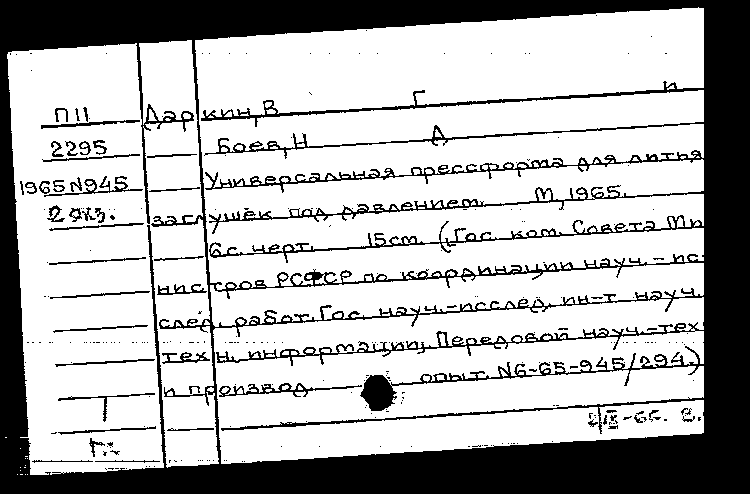 П11 Даркин, В Г и
2295 Боев, Н А
1965 N945 Универсальная прессформа для литья
2 экз. заглушек под давлением. М, 1965.
6 с. черт. 15 см. (Гос. ком. Совета Ми
нистров РСФСР по координации науч.-ис-
след. работ. Гос. науч.-исслед. ин-т науч.
техн. информации. Передовой науч.-тех
и производ. опыт. N6-65-945/294.)